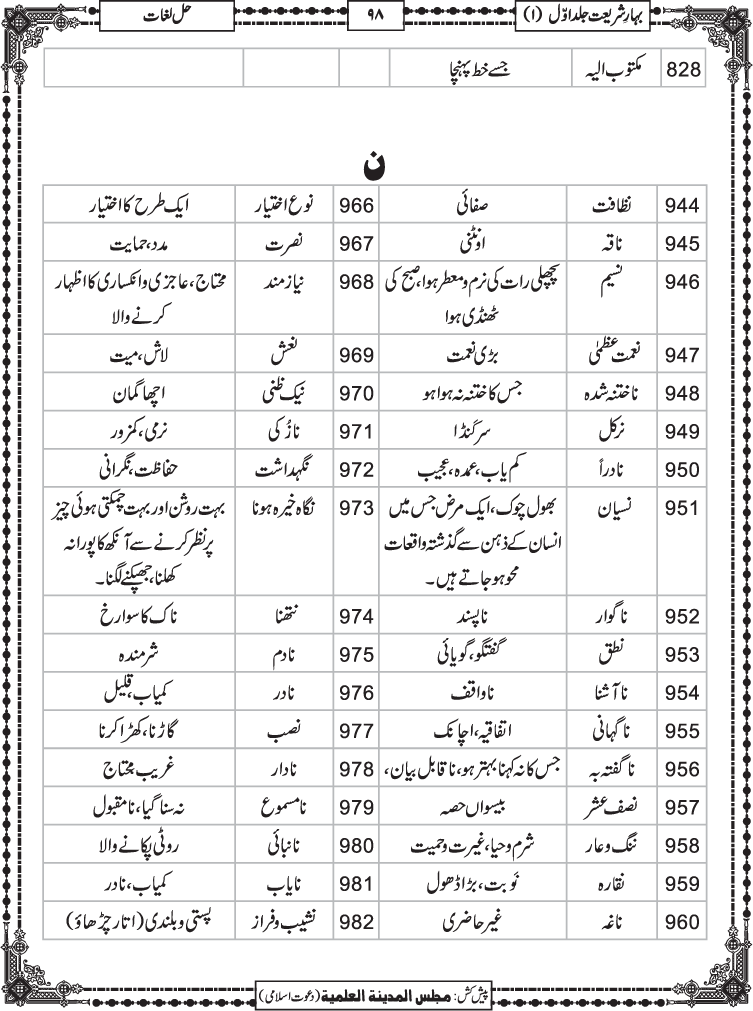 بہارِ شریعت جلد اوّل (1) ۹۸ حل لغات
828 مکتوب الیہ جسے خط پہنچا
ن
944 نظافت صفائی 966 نوع اختیار ایک طرح کا اختیار
945 ناقہ اونٹنی 967 نصرت مدد، حمایت
946 نسیم پچھلی رات کی نرم و معطر ہوا، صبح کی 968 نیاز مند محتاج، عاجزی و انکساری کا اظہار
ٹھنڈی ہوا کرنے والا
947 نعمت عظمٰی بڑی نعمت 969 نعش لاش، میت
948 ناختنہ شدہ جس کا ختنہ نہ ہوا ہو 970 نیک ظنی اچھا گمان
949 نرکل سرکنڈا 971 نازُکی نرمی، کمزور
950 نادراً کم یاب، عمدہ، عجیب 972 نگہداشت حفاظت، نگرانی
951 نسیان بھول چوک، ایک مرض جس میں 973 نگاہ خیرہ ہونا بہت روشن اور بہت چمکتی ہوئی چیز
انسان کے ذہن سے گذشتہ واقعات پر نظر کرنے سے آنکھ کا پورا نہ
محو ہو جاتے ہیں۔ کھلنا، جھپکنے لگنا۔
952 ناگوار ناپسند 974 نتھنا ناک کا سوراخ
953 نطق گفتگو، گویائی 975 نادم شرمندہ
954 ناآشنا ناواقف 976 نادر کمیاب، قلیل
955 ناگہانی اتفاقیہ، اچانک 977 نصب گاڑنا، کھڑا کرنا
956 ناگفتہ بہ جس کا نہ کہنا بہتر ہو، ناقابل بیان، 978 نادار غریب محتاج
957 نصف عشر بیسواں حصہ 979 نامسموع نہ سنا گیا، نامقبول
958 ننگ و عار شرم و حیا، غیرت و حمیت 980 نانبائی روٹی پکانے والا
959 نقارہ نَوبت، بڑا ڈھول 981 نایاب کمیاب، نادر
960 ناغہ غیر حاضری 982 نشیب و فراز پستی و بلندی (اتار چڑھاؤ)
پیش کش: مجلس المدینة العلمیة (دعوت اسلامی)